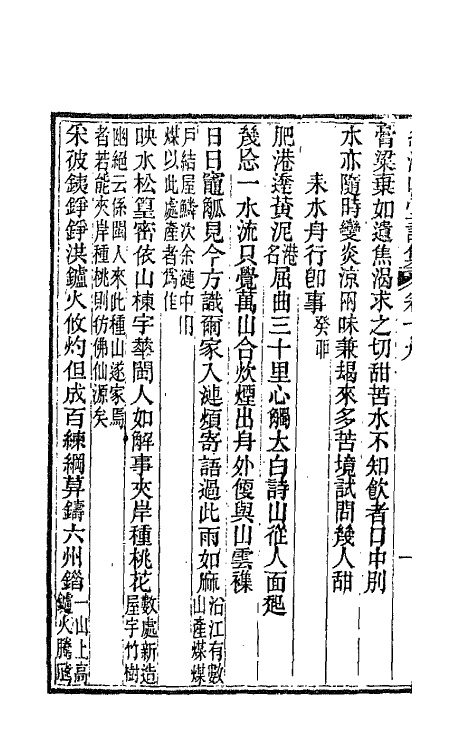 膏粱棄如遺焦渴求之切甜苦水不知飲者口中別
水亦隨時變炎涼兩味兼朅來多苦境試問幾人甜
耒水舟行卽事癸卯
肥港達黃泥港名屈曲三十里心觸太白詩山從人面起
幾忘一水流只覺萬山合炊煙出舟外便與山雲襍
日日竈觚見今方識術家入漣煩寄語過此雨如麻沿江有數山產煤煤
戶結屋鱗次余漣中旧煤以此處產者爲佳
映水松篁密依山棟宇華問人如解事夾岸種桃花數處新造屋宇竹樹
幽絕云係閩人來此種山遂家焉者若能夾岸種桃則彷彿仙源矣
釆彼銕錚錚洪鑪火攸灼但成百練綱莫鑄六州錯一山上高鑪火騰